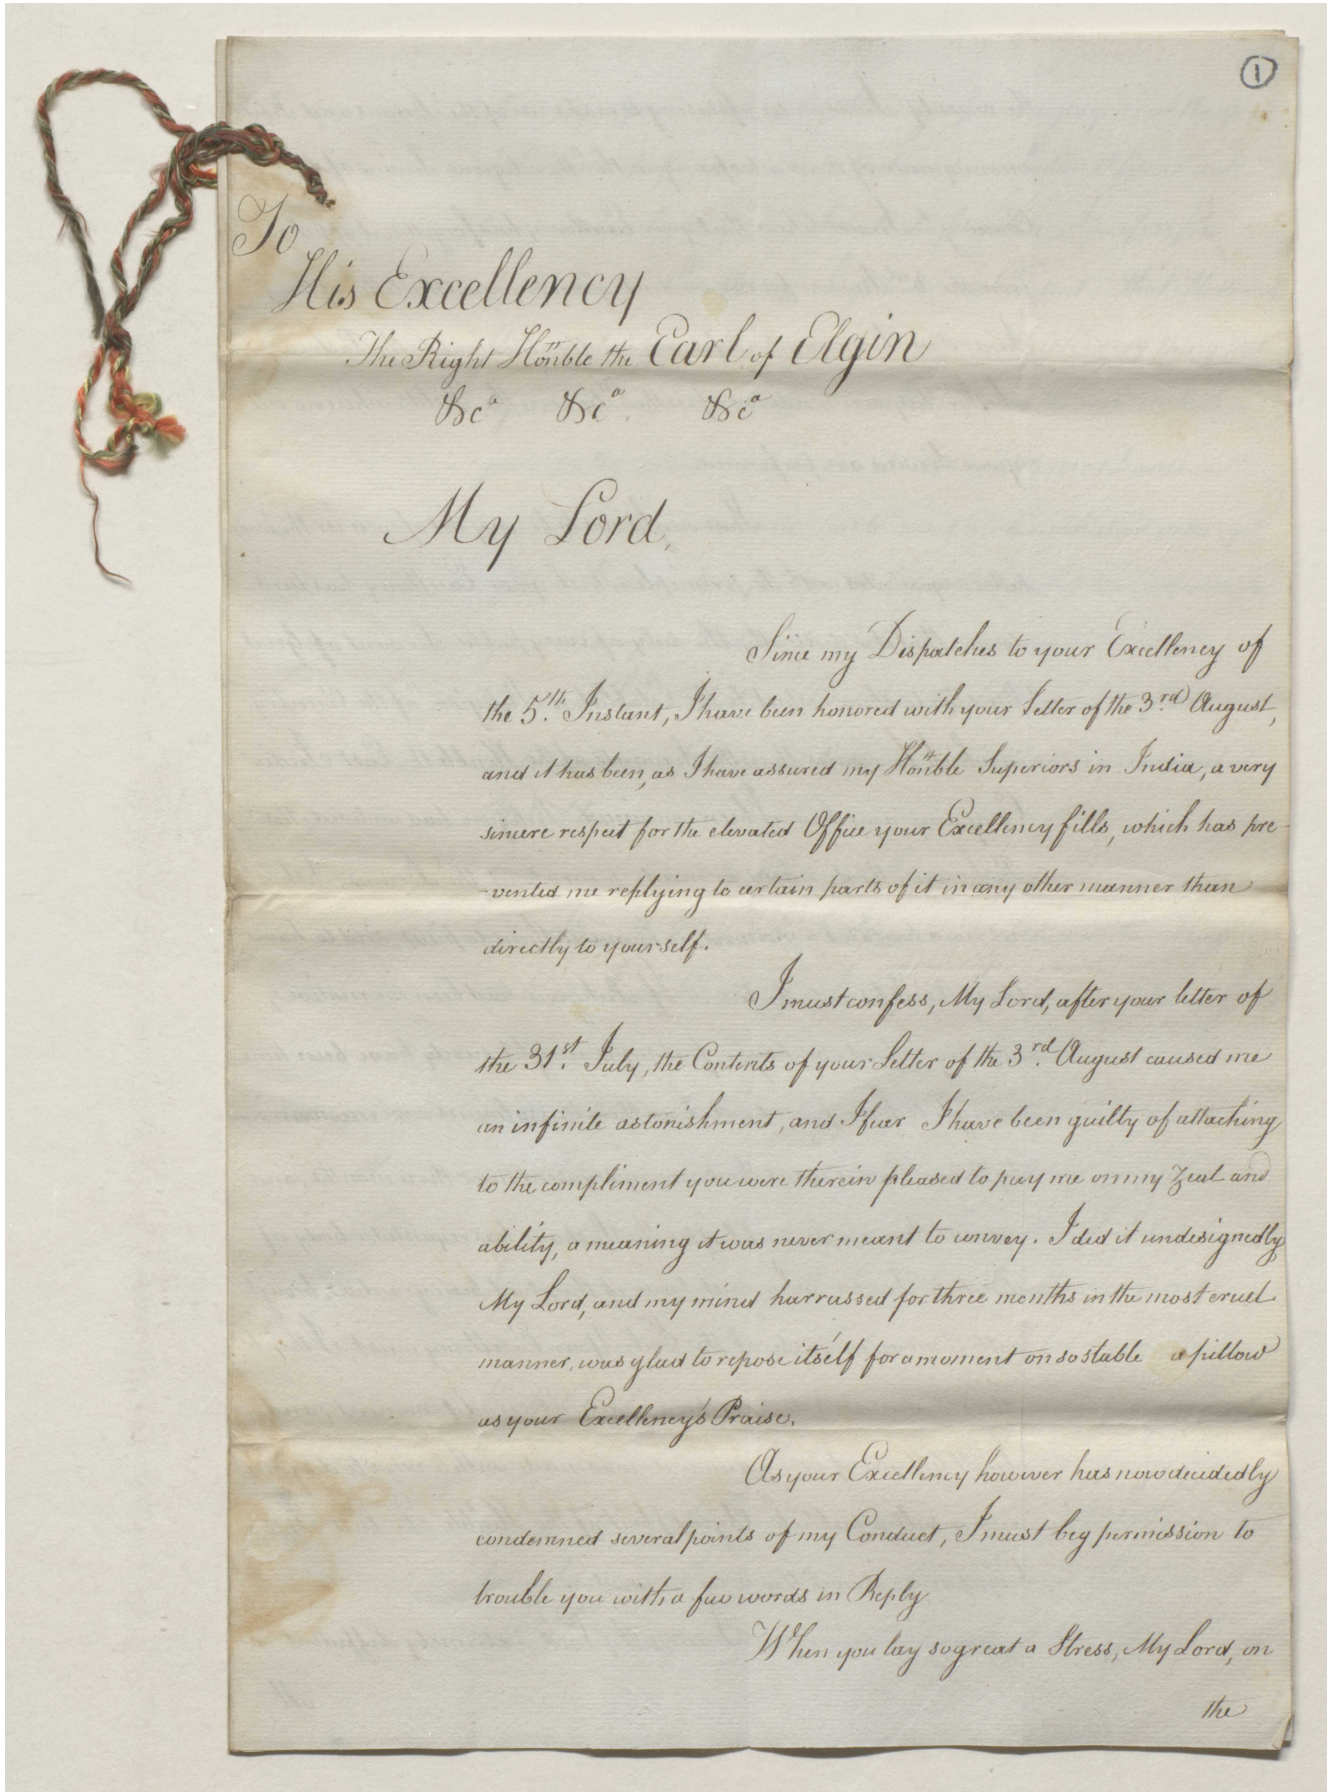 1
To
His Excellency
The Right Honble the Earl of Elgin
&ca &ca &ca
My Lord,
Since my Dispatches to your Excellency of
the 5th Instant, I have been honored with your Letter of the 3rd August,
and it has been, as I have assured my Honble Superiors in India, a very
sincere respect for the elevated Office your Excellency fills, which has pre-
-vented me replying to certain parts of it in any other manner than
directly to yourself.
I must confess, My Lord, after your letter of
the 31st July, the Contents of your Letter of the 3rd August caused me
an infinite astonishment, and I fear I have been guilty of attaching
to the compliment you were therein pleased to pay me on my Zeal and
ability, a meaning it was never meant to convey. I did it undesignedly
My Lord, and my mind harrassed for three months in the most cruel
manner, was glad to repose itself for a moment on so stable a pillow
as your Excellency's Praise.
As your Excellency however has now decidedly
condemned several points of my Conduct, I must beg permission to
trouble you with a few words in Reply
When you lay so great a Stress, My Lord, on
the